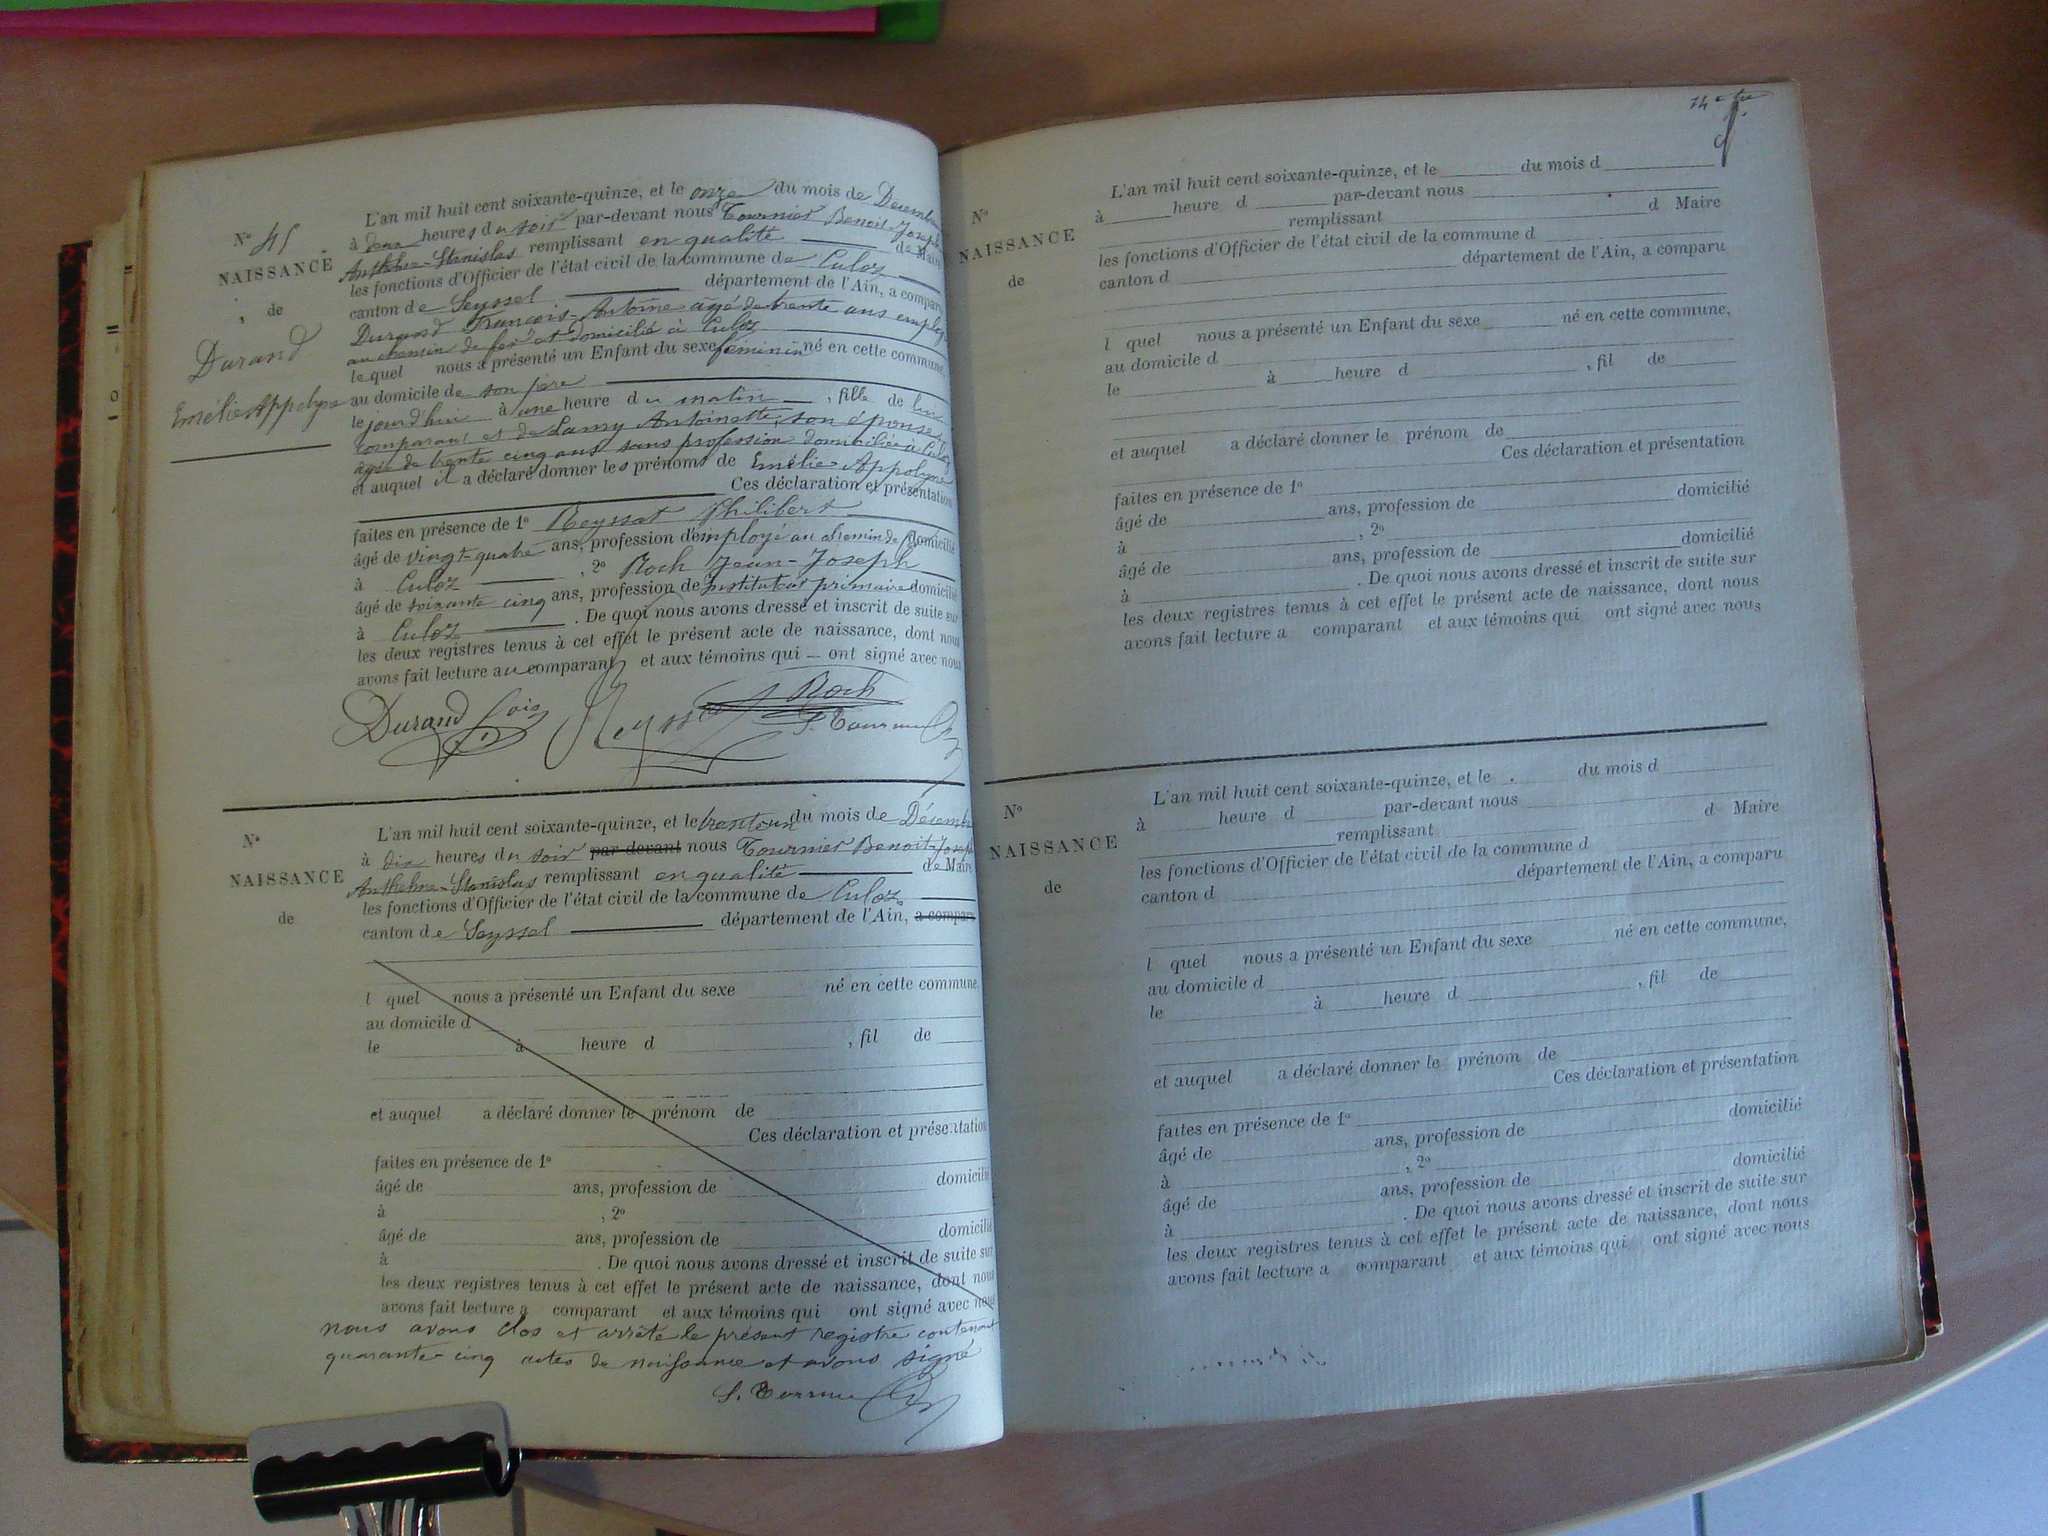 N° 45
NAISSANCE
de
Durand
Emélie Appolyne
L'an mil huit cent soixante-quinze, et le onze du mois de Décembre
à deux heures du soir par-devant nous Tournier Benoit-Joseph
Anthelme-Stanislas remplissant en qualité de Maire
les fonctions d'Officier de l'état civil de la commune de Culoz
canton de Seyssel département de l'Ain, a comparu
Durand François-Antoine âgé de trente ans employé
au chemin de fer et domicilié à Culoz
lequel nous a présenté un Enfant du sexe féminin né en cette commune,
au domicile de son père
le jourd'hui à une heure du matin , fille de lui
comparant et de Lamy Antoinette, son épouse,
âgée de trente cinq ans sans profession domiciliée à Culoz
et auquel il a déclaré donner les prénoms de Emélie Appolyne
Ces déclaration et présentation
faites en présence de 1° Reyssat Philibert
âgé de vingt-quatre ans, profession d'employé au chemin de fer domicilié
à Culoz , 2° Roch Jean-Joseph
âgé de soixante cinq ans, profession de Instituteur primaire domicilié
à Culoz . De quoi nous avons dressé et inscrit de suite sur
les deux registres tenus à cet effet le présent acte de naissance, dont nous
avons fait lecture au comparant et aux témoins qui ont signé avec nous
Durand fois Reyssat J Roch
S. Tournier
N°
NAISSANCE
de
L'an mil huit cent soixante-quinze, et le trente un du mois de Décembre
à dix heures du soir par-devant nous Tournier Benoit-Joseph
Anthelme-Stanislas remplissant en qualité de Maire
les fonctions d'Officier de l'état civil de la commune de Culoz
canton de Seyssel département de l'Ain, a comparu
l quel nous a présenté un Enfant du sexe né en cette commune,
au domicile d
le à heure d , fil de
et auquel a déclaré donner le prénom de
Ces déclaration et présentation
faites en présence de 1°
âgé de ans, profession de domicilié
à , 2°
âgé de ans, profession de domicilié
à . De quoi nous avons dressé et inscrit de suite sur
les deux registres tenus à cet effet le présent acte de naissance, dont nous
avons fait lecture a comparant et aux témoins qui ont signé avec nous
nous avons clos et arrêté le présent registre contenant
quarante-cinq actes de naissance et avons signé
S. Tournier
14
N°
NAISSANCE
de
L'an mil huit cent soixante-quinze, et le du mois d
à heure d par-devant nous
remplissant d Maire
les fonctions d'Officier de l'état civil de la commune d
canton d département de l'Ain, a comparu
l quel nous a présenté un Enfant du sexe né en cette commune,
au domicile d
le à heure d , fil de
et auquel a déclaré donner le prénom de
Ces déclaration et présentation
faites en présence de 1°
âgé de ans, profession de domicilié
à , 2°
âgé de ans, profession de domicilié
à . De quoi nous avons dressé et inscrit de suite sur
les deux registres tenus à cet effet le présent acte de naissance, dont nous
avons fait lecture a comparant et aux témoins qui ont signé avec nous
N°
NAISSANCE
de
L'an mil huit cent soixante-quinze, et le du mois d
à heure d par-devant nous
remplissant d Maire
les fonctions d'Officier de l'état civil de la commune d
canton d département de l'Ain, a comparu
l quel nous a présenté un Enfant du sexe né en cette commune,
au domicile d
le à heure d , fil de
et auquel a déclaré donner le prénom de
Ces déclaration et présentation
faites en présence de 1°
âgé de ans, profession de domicilié
à , 2°
âgé de ans, profession de domicilié
à . De quoi nous avons dressé et inscrit de suite sur
les deux registres tenus à cet effet le présent acte de naissance, dont nous
avons fait lecture a comparant et aux témoins qui ont signé avec nous